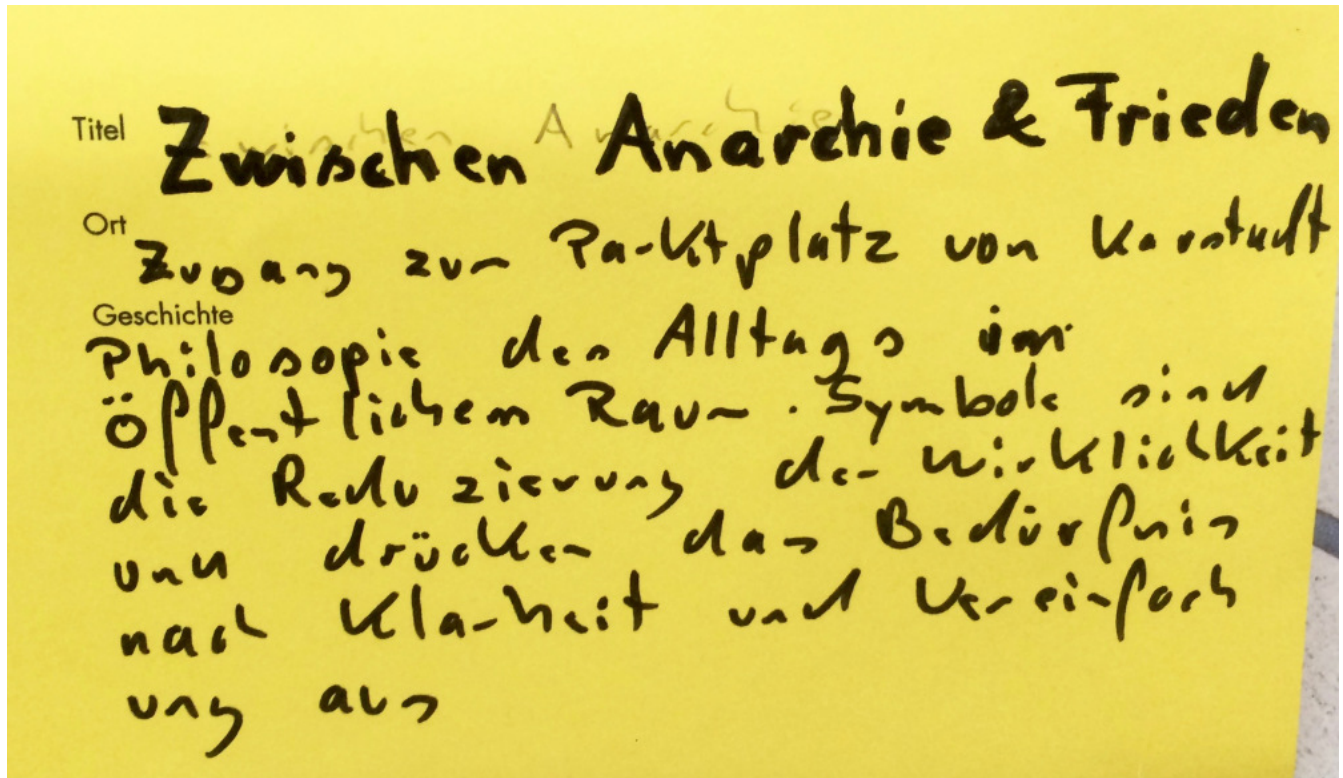 Titel Zwischen Anarchie & Frieden
Ort
Zugang zum Parktplatz von Karstadt
Geschichte
Philosopie des Alltags im
öffentlichem Raum. Symbole sind
die Reduzierung der Wirklichkeit
und drücken das Bedürfnis
nach Klarheit und Vereinfach
ung aus